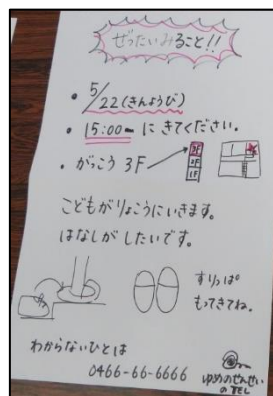 ぜったいみること!!
・5/22(きんようび)
・15:00〜にきてください。
・がっこう 3F
3F
2F
1F
こどもがりょこうにいきます。
はなしがしたいです。
すりっぱ
もってきてね。
わからないひとは
0466-66-6666
ゆめのせんせい
のTEL